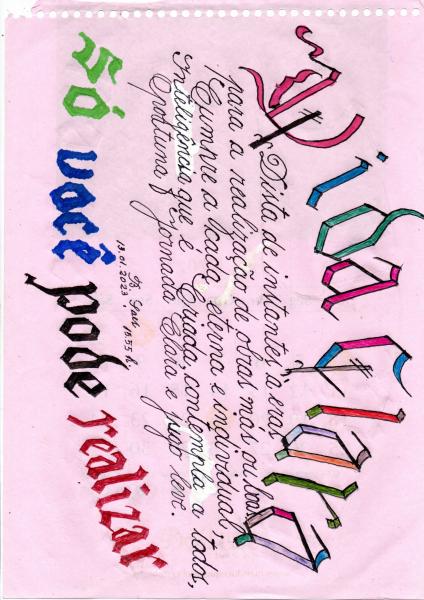 Dista de instantes à eras
para a realização de obras más ou boas
Cumpre a cada eterna e individual,
Inteligência que é Criada, contempla a todos,
Oportuna, é jornada Clara e jugo leve.
13.01.2023
Só você pode realizar